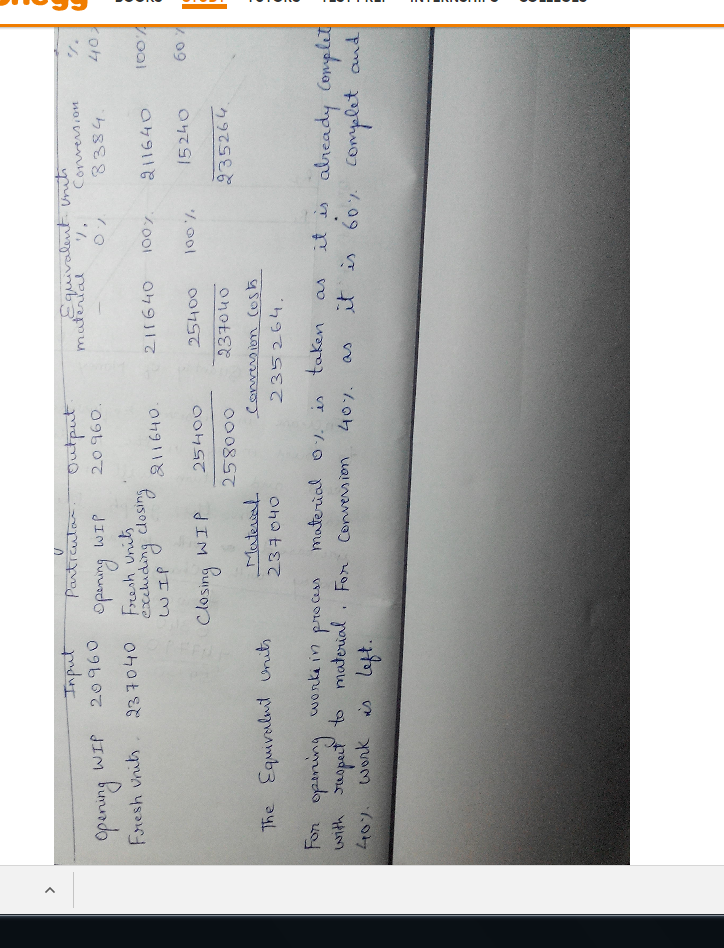 BOOKS STUDY TUTORS TEST PREP INTERNSHIPS COLLEGES
Equivalent units
Input Particular Output material % Conversion %
Opening WIP 20960 Opening WIP 20960. – 0% 8384. 40%
Fresh units. 237040 Fresh units
excluding closing
WIP 211640. 211640 100% 211640 100%
Closing WIP 25400 25400 100% 15240 60%
258000 237040 235264
Material Conversion Costs
The Equivalent units 237040 235264.
For opening work in process material 0% is taken as it is already complet
with respect to material. For Conversion 40% as it is 60% complet and
40% work is left.